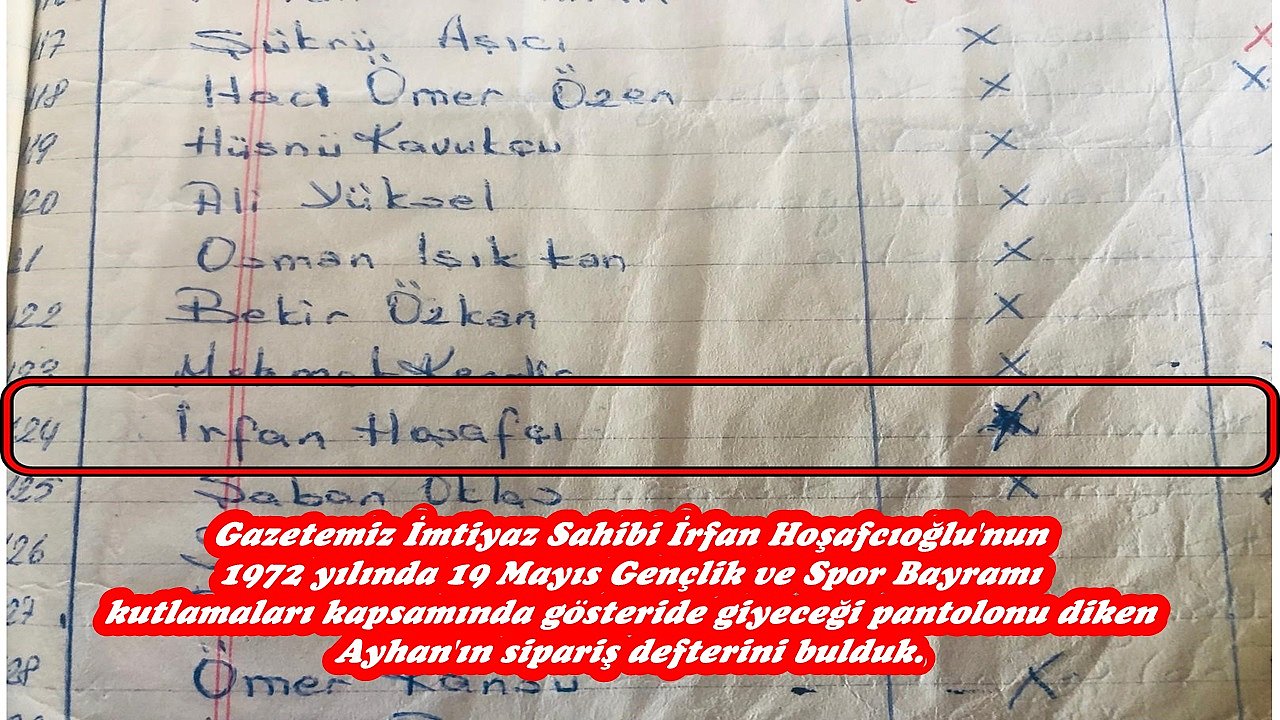 117 Şükrü Aşıcı × ×
118 Hacı Ömer Özen × ×
119 Hüsnü Kavukçu ×
120 Ali Yüksel ×
Osman Işıktan ×
122 Bekir Özkan ×
123 Mehmet ×
124 İrfan Hoşafçı ×
125 Şaban Oktaş ×
Gazetemiz İmtiyaz Sahibi İrfan Hoşafcıoğlu'nun
126
1972 yılında 19 Mayıs Gençlik ve Spor Bayramı
27
kutlamaları kapsamında gösteride giyeceği pantolonu diken
Ayhan'ın sipariş defterini bulduk.
28 Ömer Kansu ×